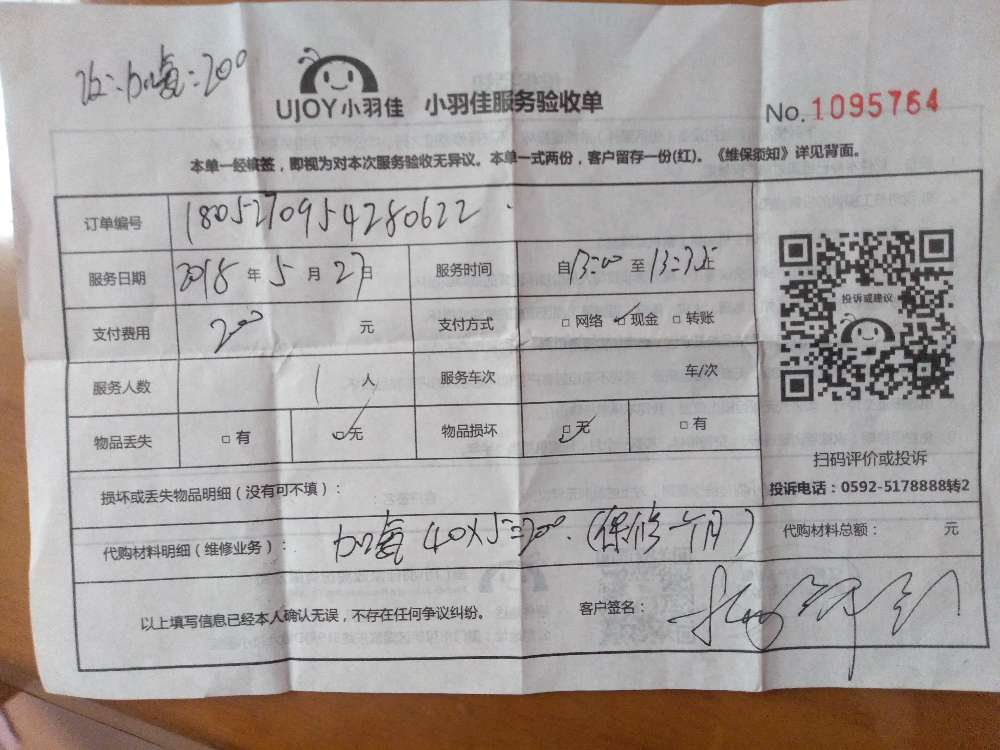 加氟=200
UJOY小羽佳 小羽佳服务验收单
No.1095764
本单一经缜签，即视为对本次服务验收无异议。本单一式两份，客户留存一份(红)。《维保须知》详见背面。
订单编号 1805270954280622
服务日期 2018 年 5 月 27 日 服务时间 自 13:00 至 13:35
支付费用 200 元 支付方式 □ 网络 ☑ 现金 □ 转账
服务人数 1 人 服务车次 车/次
物品丢失 □ 有 ☑ 无 物品损坏 ☑ 无 □ 有
投诉或建议
扫码评价或投诉
投诉电话：0592-5178888转2
损坏或丢失物品明细（没有可不填）：
代购材料明细（维修业务）： 加氟 40×5=200.（保修一个月） 代购材料总额： 元
以上填写信息已经本人确认无误，不存在任何争议纠纷。 客户签名：